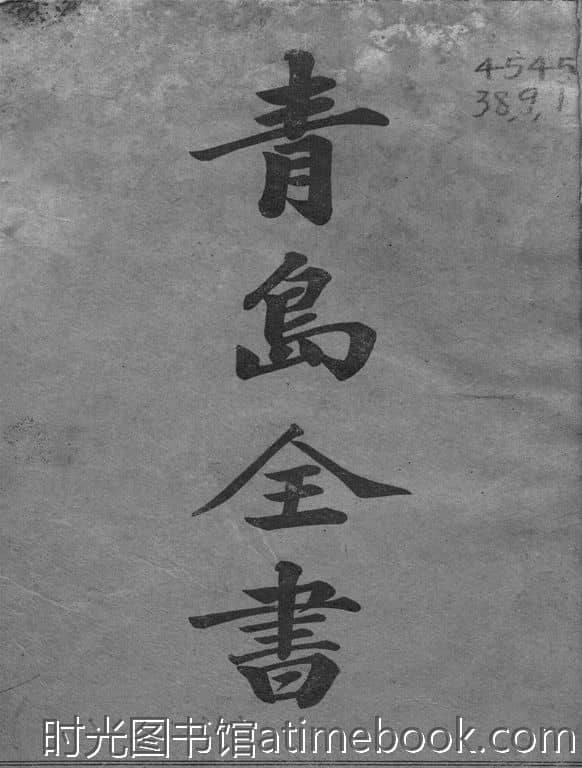 青島全書
4545
38,9,1
时光图书馆atimebook.com